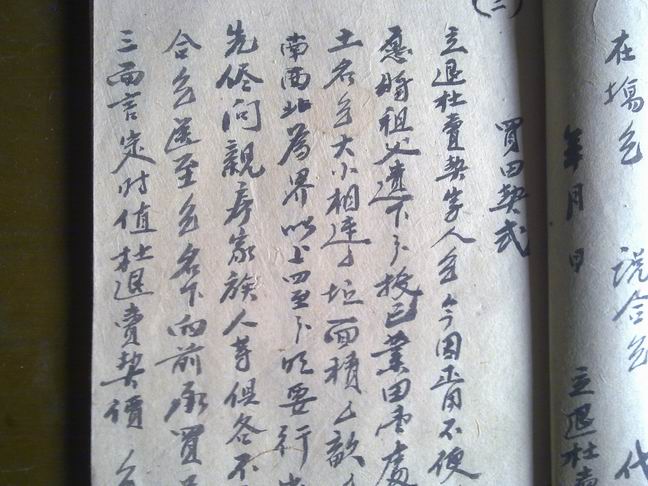 在塲㐰 説合㐰 代
年月日 立退杜賣
(二)
買田契式
立退杜賣契字人㐰今因正用不便
愿將祖父遺下分授己業田壹處
土名㐰大小相連 坵面積 畝
南西北為界以上四至分明要行出
先侭问親房家族人等俱各不
合㐰送至㐰名下向前承買
三面言定时值杜退賣契價